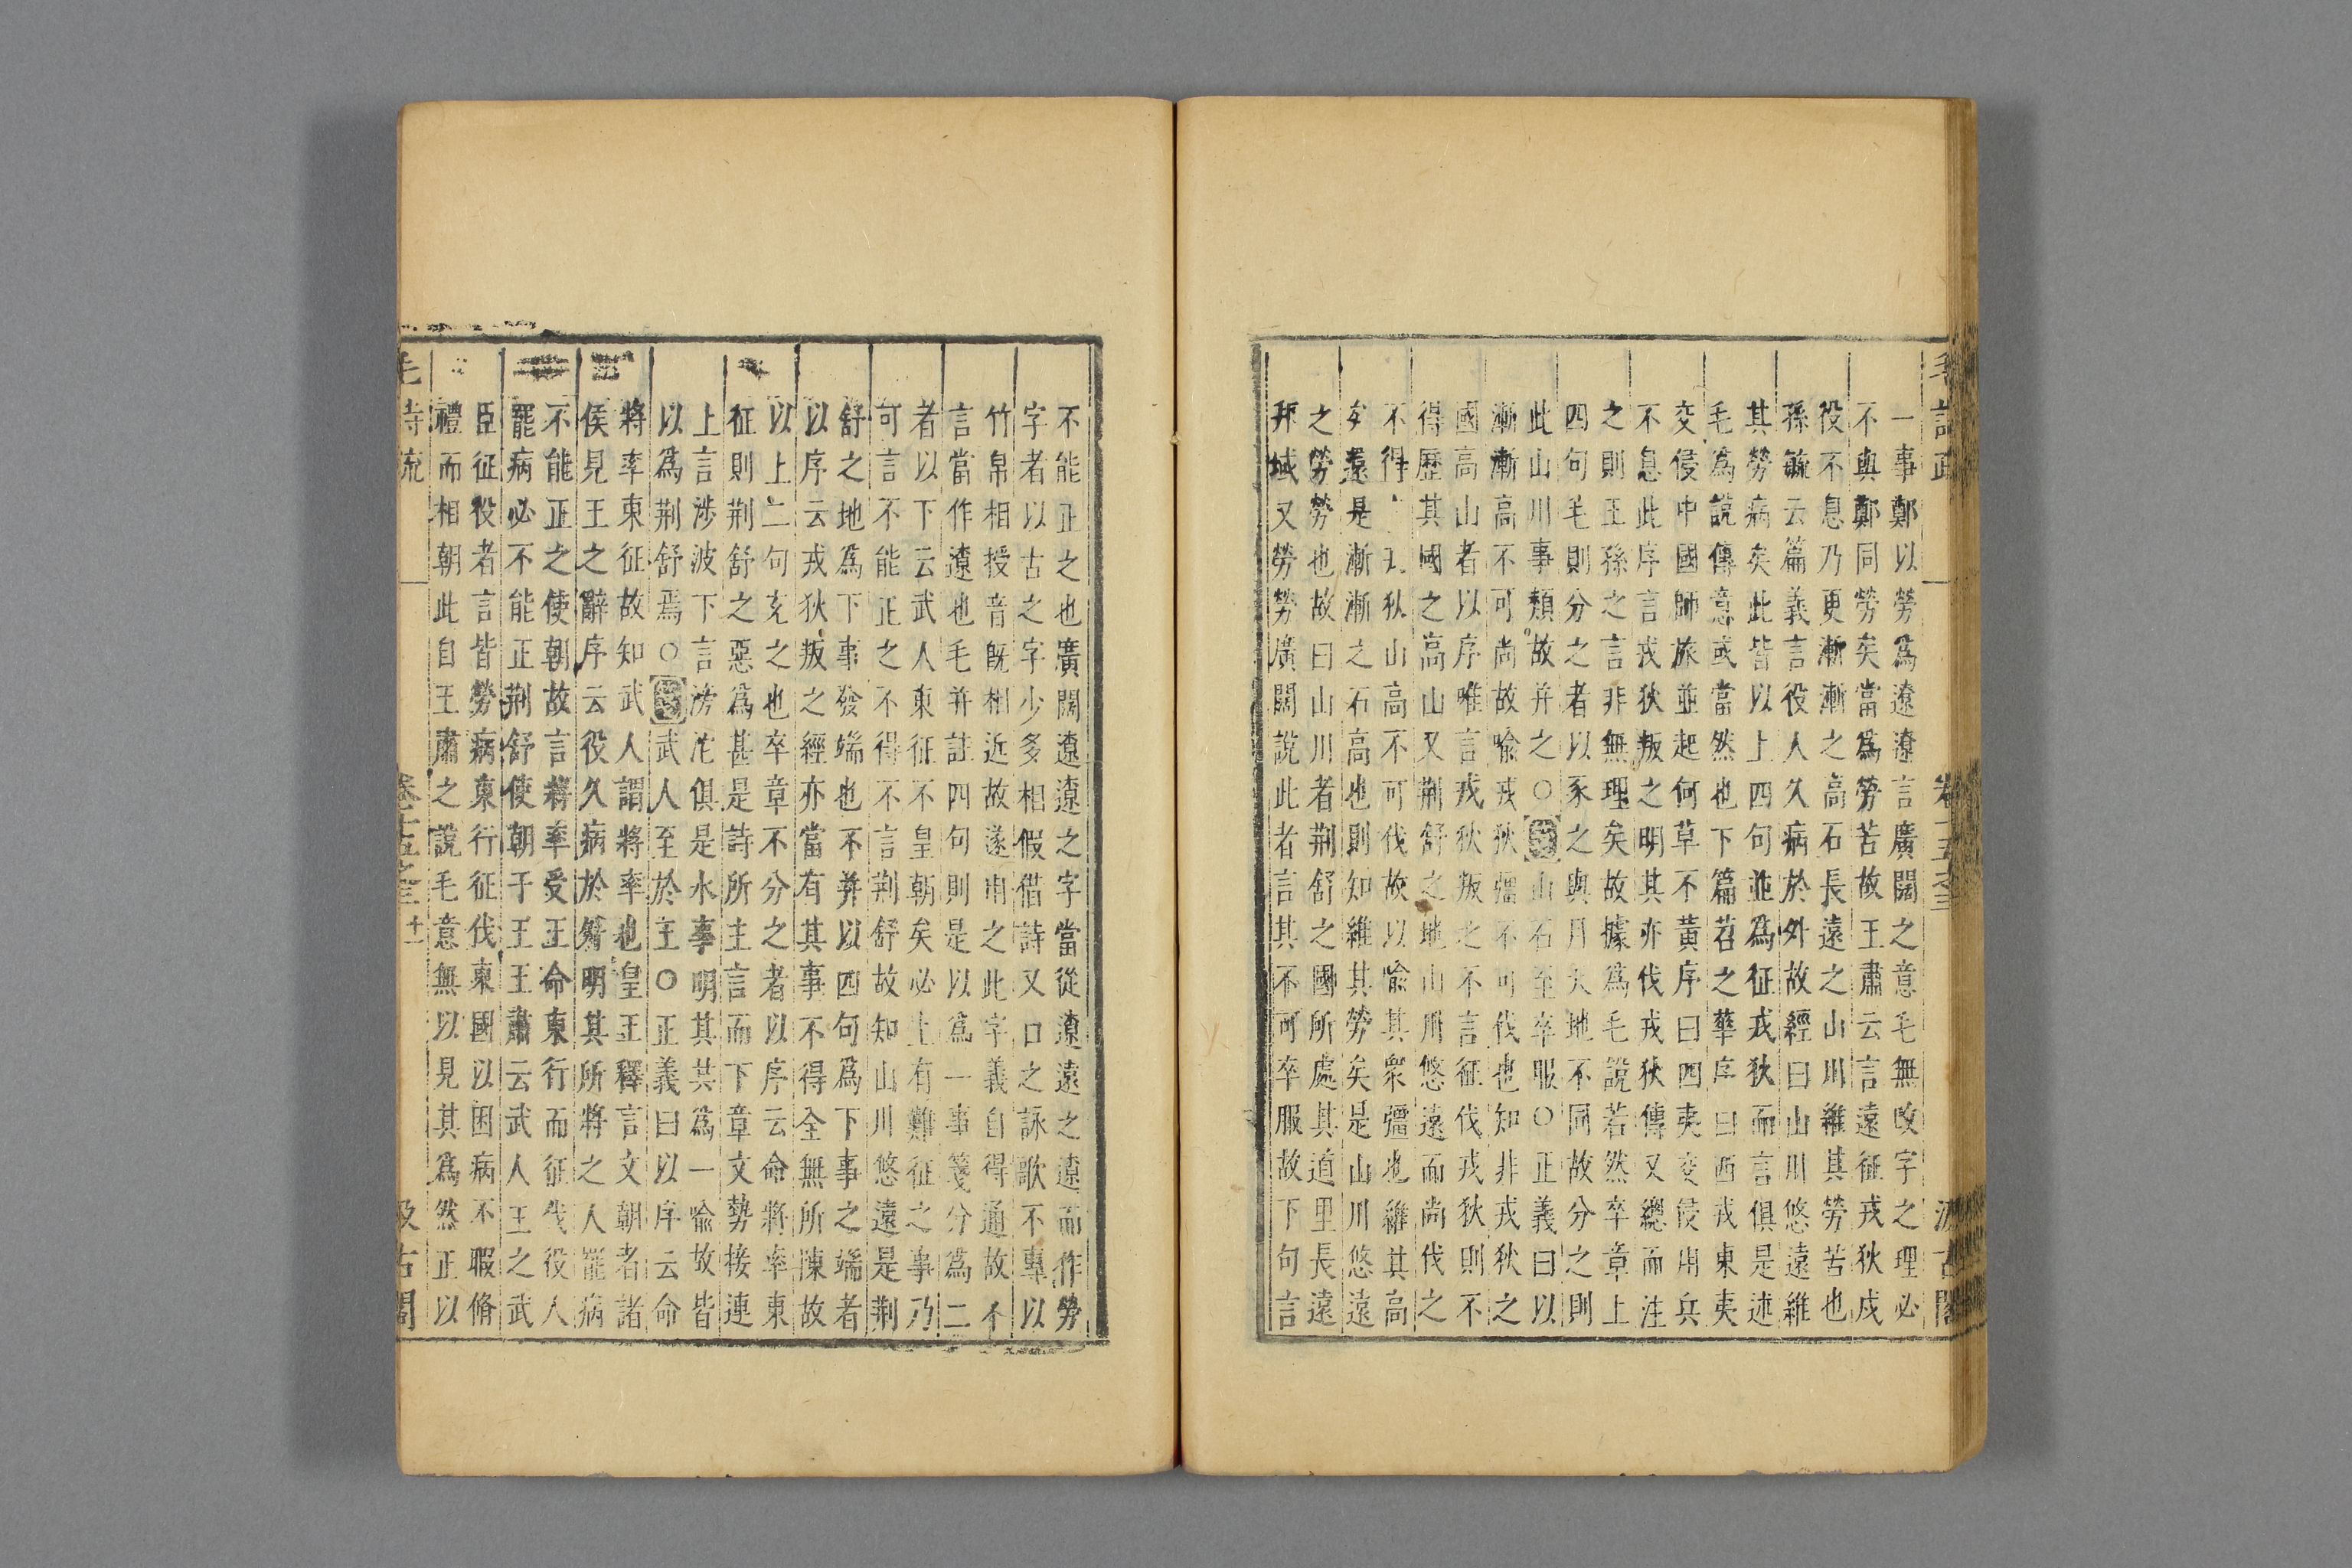 一事鄭以勞爲遼遼言廣闊之意毛無改字之理必
不與鄭同勞矣當爲勞苦故王肅云言遠征戎狄戍
役不息乃更漸漸之高石長遠之山川維其勞苦也
孫毓云篇義言役人久病於外故經曰山川悠遠維
其勞病矣此皆以上四句並爲征戎狄而言俱是述
毛爲說傳意或當然也下篇苕之華序曰西戎東夷
交侵中國師旅並起何草不黃序曰四夷交侵用兵
不息此序言戎狄叛之明其亦伐戎狄傳又緫而注
之則王孫之言非無理矣故據爲毛說若然卒章上
四句毛則分之者以豕之與月天地不同故分之則
此山川事類故并之○山石至卒服○正義曰以
漸漸高不可尚故喻戎狄彊不可伐也知非戎狄之
國高山者以序唯言戎狄叛之不言征伐戎狄則不
得歷其國之高山又荆舒之地山川悠遠而尚伐之
不得 狄山高不可伐故以喻其衆彊也維其高
是漸漸之石高也則知維其勞矣是山川悠遠
之勞勞也故曰山川者荆舒之國所處其道里長遠
邦域又勞勞廣闊說此者言其不可卒服故下句言
不能正之也廣闊遼遼之字當從遼遠之遠而作勞
字者以古之字少多相假借詩又口之詠歌不專以
竹帛相授音旣相近故遂用之此字義自得通故不
言當作遼也毛并註四句則是以爲一事箋分爲二
者以下云武人東征不皇朝矣必上有難征之事乃
可言不能正之不得不言荆舒故知山川悠遠是荆
舒之地爲下事發端也不并以四句爲下事之端者
以序云戎狄叛之經亦當有其事不得全無所陳故
以上二句充之也卒章不分之者以序云命將率東
征則荆舒之惡爲甚是詩所主言而下章文勢接連
上言涉波下言滂沱俱是水事明其共爲一喻故皆
以爲荆舒焉○武人至於王○正義曰以序云命
將率東征故知武人謂將率也皇王釋言文朝者諸
侯見王之辭序云役久病於外明其所將之人罷病
不能正之使朝故言將率受王命東行而征伐役人
罷病必不能正荆舒使朝于王王肅云武人王之武
臣征役者言皆勞病東行征伐東國以困病不暇脩
禮而相朝此自王肅之說毛意無以見其爲然正以
毛詩疏 卷十五之三 十一 汲古閣